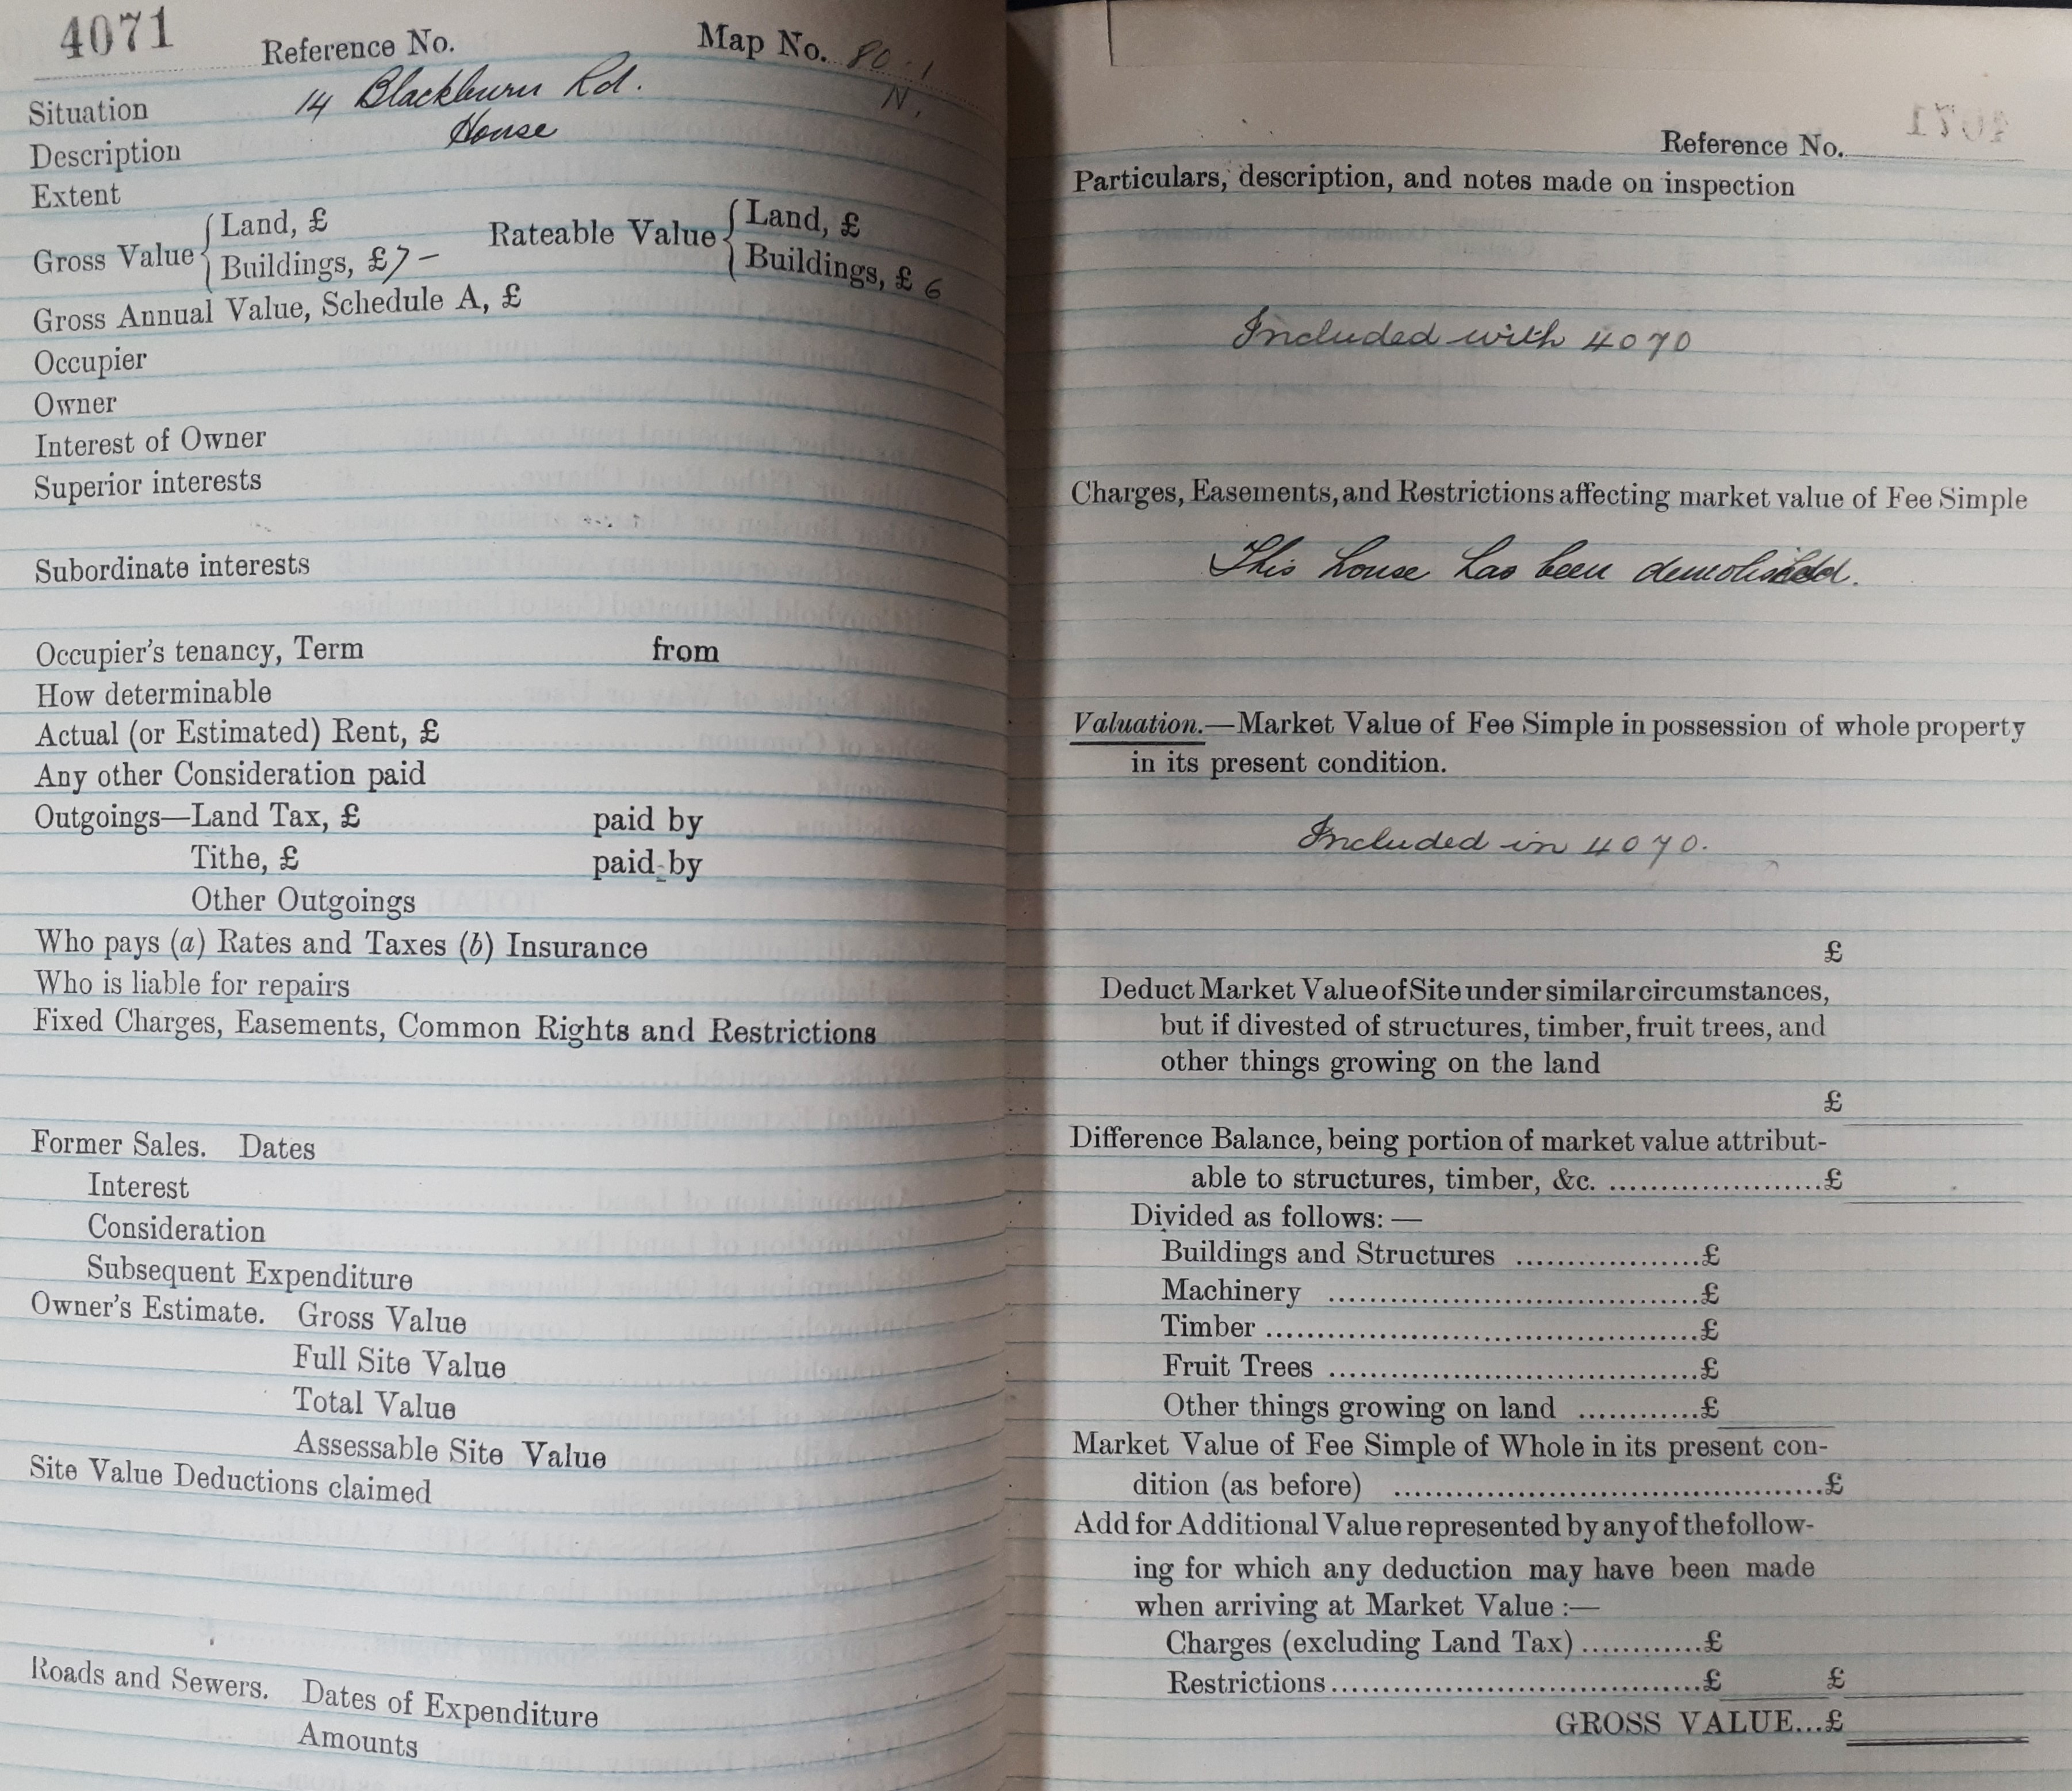 4071 Reference No. Map No. 80.1
Situation 14 Blackburn Rd. N.
Description House
Extent
Gross Value { Land, £ Rateable Value { Land, £
Buildings, £ 7 – Buildings, £ 6
Gross Annual Value, Schedule A, £
Occupier
Owner
Interest of Owner
Superior interests
Subordinate interests
Occupier's tenancy, Term from
How determinable
Actual (or Estimated) Rent, £
Any other Consideration paid
Outgoings—Land Tax, £ paid by
Tithe, £ paid by
Other Outgoings
Who pays (a) Rates and Taxes (b) Insurance
Who is liable for repairs
Fixed Charges, Easements, Common Rights and Restrictions
Former Sales. Dates
Interest
Consideration
Subsequent Expenditure
Owner's Estimate. Gross Value
Full Site Value
Total Value
Assessable Site Value
Site Value Deductions claimed
Roads and Sewers. Dates of Expenditure
Amounts
Reference No. 4071
Particulars, description, and notes made on inspection
Included with 4070
Charges, Easements, and Restrictions affecting market value of Fee Simple
This house has been demolished.
Valuation.—Market Value of Fee Simple in possession of whole property
in its present condition.
Included in 4070.
£
Deduct Market Value of Site under similar circumstances,
but if divested of structures, timber, fruit trees, and
other things growing on the land
£
Difference Balance, being portion of market value attribut-
able to structures, timber, &c. ......................£
Divided as follows: —
Buildings and Structures ...................£
Machinery ......................................£
Timber ............................................£
Fruit Trees ......................................£
Other things growing on land ............£
Market Value of Fee Simple of Whole in its present con-
dition (as before) ............................................£
Add for Additional Value represented by any of the follow-
ing for which any deduction may have been made
when arriving at Market Value :—
Charges (excluding Land Tax) ............£
Restrictions ......................................£ £
GROSS VALUE...£